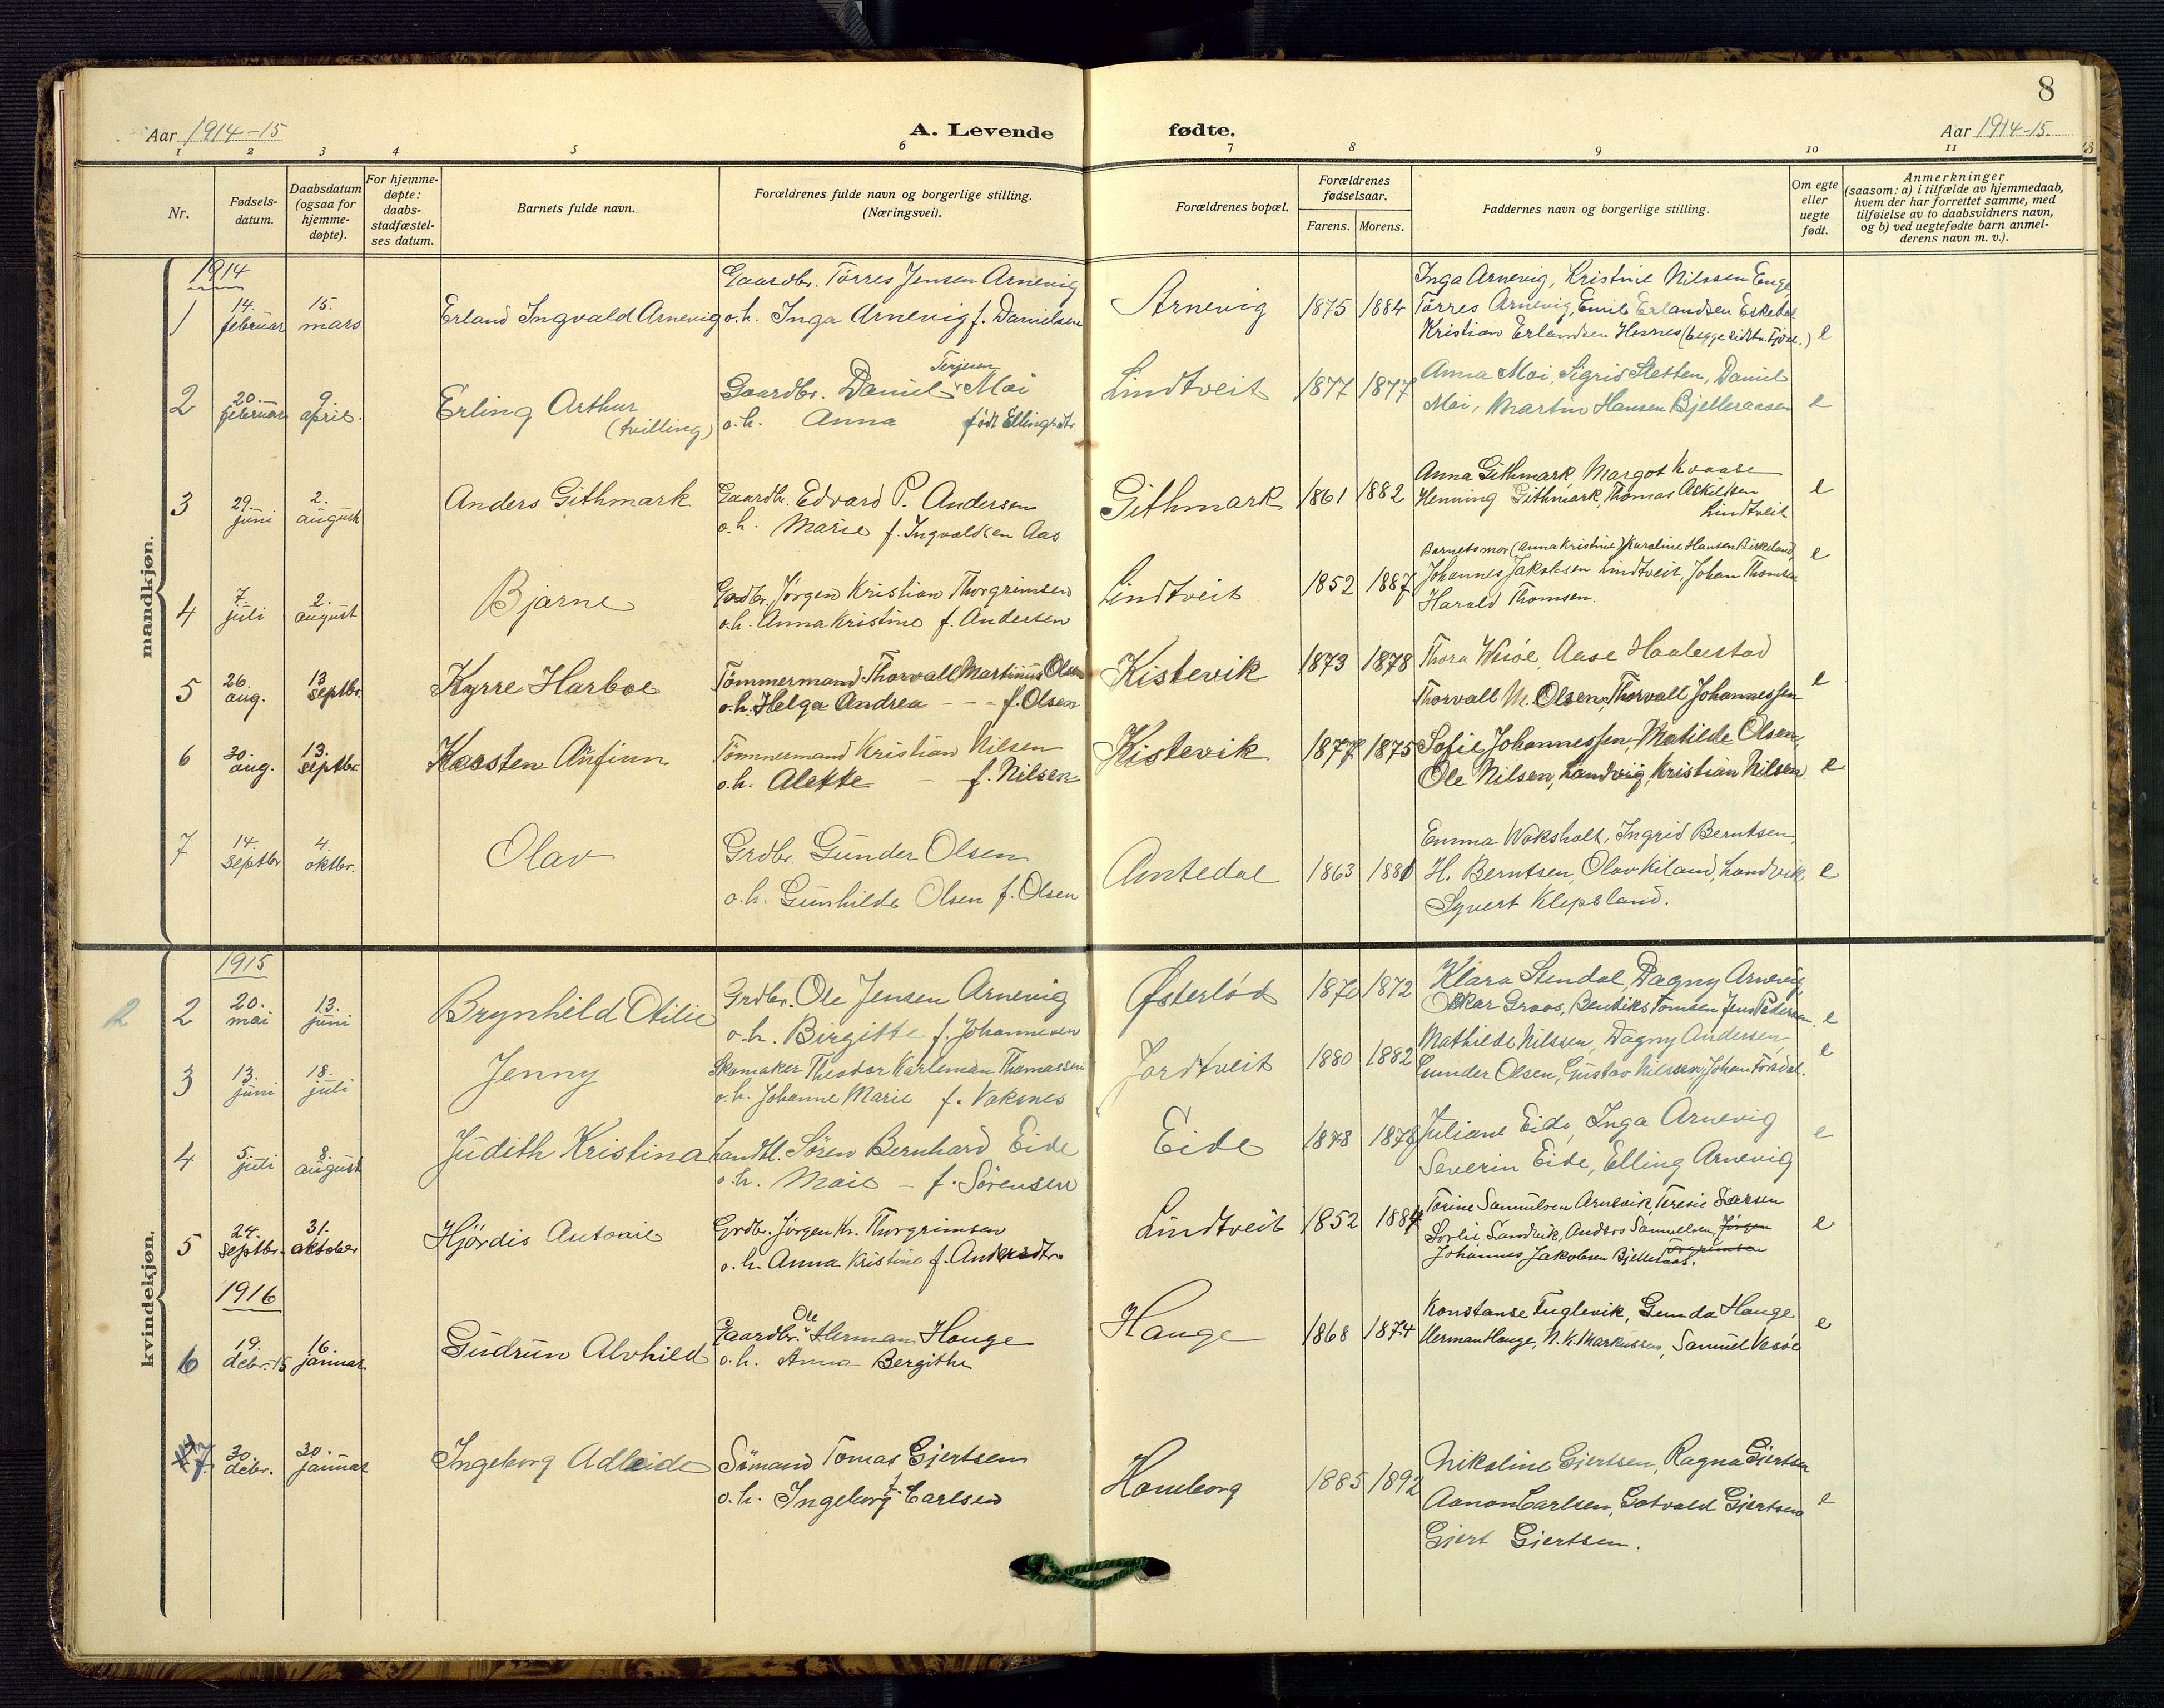 8
Aar 1914-15
A. Levende fødte.
Aar 1914-15.
1 2 3 4 5 6 7 8 9 10 11
Nr.
Fødsels-
datum.
Daabsdatum
(ogsaa for
hjemme-
døpte).
For hjemme-
døpte:
daabs-
stadfæstel-
ses datum.
Barnets fulde navn.
Forældrenes fulde navn og borgerlige stilling.
(Næringsvei).
Forældrenes bopæl.
Forældrenes
fødselsaar.
Farens. Morens.
Faddernes navn og borgerlige stilling.
Om egte
eller
uegte
født.
Anmerkninger
(saasom: a) i tilfælde av hjemmedaab,
hvem der har forrettet samme, med
tilføielse av to daabsvidners navn,
og b) ved uegtefødte barn anmel-
derens navn m. v.).
mandkjøn.
1914
1
14.
februar
15.
mars
Erland Ingvald Arnevig
Gaardbr. Tørres Jensen Arnevig
o.h. Inga Arnevig f. Danielsen
Arnevig
1875 1884
Inga Arnevig, Kristine Nilssen Enge
Tørres Arnevig, Emil Erlandsen Eskedal
Kristian Erlandsen Hesnes (begge sidstn. Fjære.)
e
2
20.
februar
9.
april.
Erling Arthur
(tvilling)
Terjesen
Gaardbr. Daniel Moi
o.h. Anna født Ellingsdtr.
Lindtveit
1877 1877
Anna Moi, Sigrid Sletten, Daniel
Moi, Martin Hansen Bjelleraasen
e
3
29.
juni
2.
august
Anders Githmark
Gaardbr. Edvard P. Andersen
o.h. Marie f. Ingvaldsen Aas
Githmark
1861 1882
Anna Githmark, Margot Kvaase
Henning Githmark, Thomas Askildsen
Lindtveit
e
4
7.
juli
2.
august
Bjarne
Gardbr. Jørgen Kristian Thorgrimsen
o.h. Anna Kristine f. Andersen
Lindtveit
1852 1887
Barnets mor (Anna Kristine) Karoline Hansen Birkeland
Johannes Jakobsen Lindtveit, Johan Thomsen
Harald Thomsen.
e
5
26.
aug.
13
septbr.
Kyrre Harboe
Tømmermand Thorvall Martinius Olsen
o.h. Helga Andrea - - - f. Olsen
Kistevik
1873 1878
Thora Wesøe, Aase Haabestad
Thorvall M. Olsen, Thorvall Johannessen
e
6
30.
aug.
13.
septbr.
Karsten Arnfinn
Tømmermand Kristian Nilsen
o.h. Alette - f. Nilsen
Kistevik
1877 1875
Sofie Johannessen, Matilde Olsen,
Ole Nilsen, Landvig, Kristian Nilsen
e
7
14.
septbr
4.
oktbr.
Olav
Grdbr. Gunder Olsen
o.h. Gunhilde Olsen f. Olsen
Amtedal
1863 1881
Emma Voksholt, Ingrid Berntsen,
H. Berntsen, Olav Kiland, Landvik
Syvert Klepsland.
e
kvindekjøn.
1915
2
2
20.
mai
13.
juni
Brynhild Otilie
Grdbr. Ole Jensen Arnevig
o.h. Birgitte f. Johannesen
Østerlød
1870 1872
Klara Stendal, Dagny Arnevig
Oskar Groos, Bendiks Tomsen, Jens Pedersen.
e
3
13.
juni
18.
juli
Jenny
Skomaker Theodor Karleman Thomassen
o.h. Johanne Marie f. Vaksnes
Jordtveit
1880 1882
Mathilde Nilssen, Dagny Andersen
Gunder Olsen, Gustav Nilssen, Johan Forsdal.
e
4
5.
juli
8.
august
Judith Kristina
Landhl. Søren Bernhard Eide
o.h. Marie - f. Sørensen
Eide
1878 1878
Juliane Eide, Inga Arnevig
Severin Eide, Elling Arnevig
e
5
24.
septbr.
31.
oktober
Hjørdis Antonie
Grdbr. Jørgen Kr. Thorgrimsen
o.h. Anna Kristine f. Andersdtr.
Lindtveit
1852 1887
Torine Samuelsen Arnevik, Teresie Larsen
Sørlie Landvik, Anders Samuelsen, Jørgen
Johannes Jakobsen Bjelleraas. Torgrimsen
e
1916
6
19.
debr.-15
16.
januar
Gudrun Alvhild
Ole
Gaardbr. Herman Hauge
o.h. Anna Bergithe
Hauge
1868 1874
Konstanse Fuglevik, Gunda Hauge
Herman Hauge, N. K. Markussen, Samuel Vesøe
e
7
30.
debr.
30.
januar
Ingeborg Adleide
Sømand Tomas Gjertsen
o.h. Ingeborg f. Carlsen
Homborg
1885 1892
Nikoline Gjertsen, Ragna Gjertsen
Aanon Carlsen, Gotvald Gjertsen
Gjert Gjertsen.
e